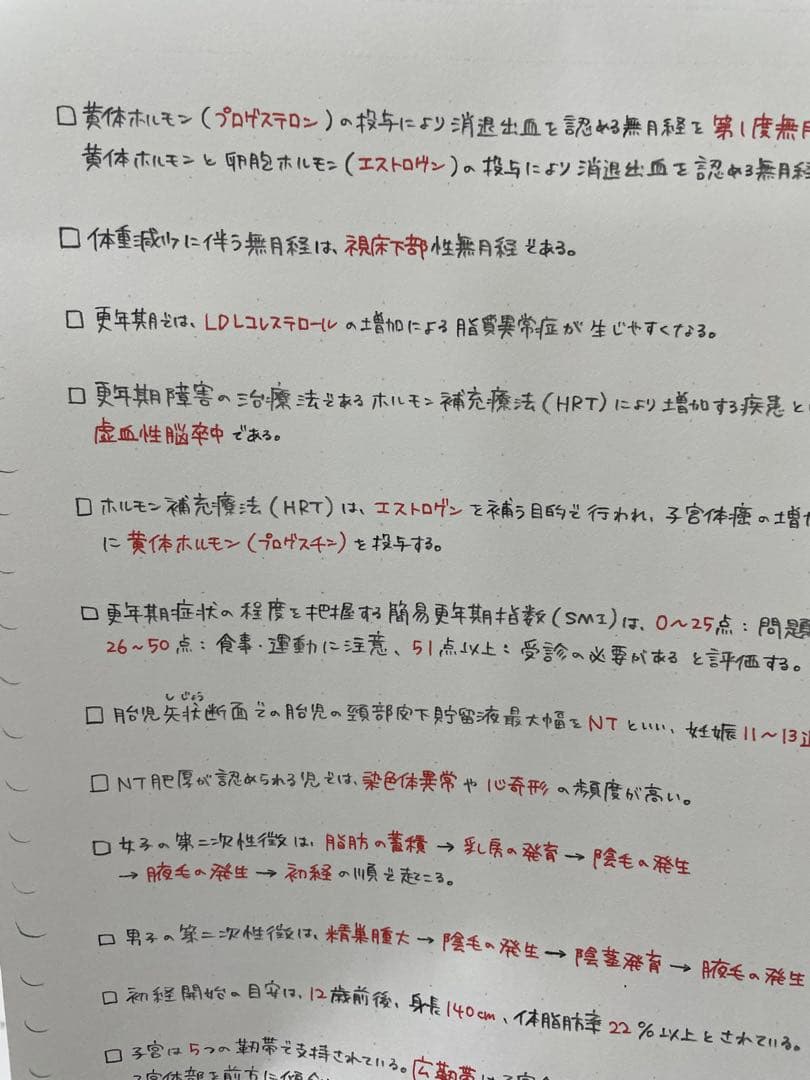 □ 黄体ホルモン(プロゲステロン)の投与により消退出血を認める無月経を第1度無月
黄体ホルモンと卵胞ホルモン(エストロゲン)の投与により消退出血を認める無月経
□ 体重減少に伴う無月経は、視床下部性無月経である。
□ 更年期では、LDLコレステロールの増加による脂質異常症が生じやすくなる。
□ 更年期障害の治療法であるホルモン補充療法(HRT)により増加する疾患と
虚血性脳卒中である。
□ ホルモン補充療法(HRT)は、エストロゲンを補う目的で行われ、子宮体癌の増
に黄体ホルモン(プロゲスチン)を投与する。
□ 更年期症状の程度を把握する簡易更年期指数(SMI)は、0〜25点:問題
26〜50点:食事・運動に注意、51点以上:受診の必要があると評価する。
しじょう
□ 胎児矢状断面での胎児の頸部皮下貯留液最大幅をNTといい、妊娠11〜13週
□ NT肥厚が認められる児では、染色体異常や心奇形の頻度が高い。
□ 女子の第二次性徴は、脂肪の蓄積→乳房の発育→陰毛の発生
→腋毛の発生→初経の順で起こる。
□ 男子の第二次性徴は、精巣腫大→陰毛の発生→陰茎発育→腋毛の発生
□ 初経開始の目安は、12歳前後、身長140cm、体脂肪率22%以上とされている。
□ 子宮は5つの靭帯で支持されている。広靭帯は子宮
子宮体部を前方に傾